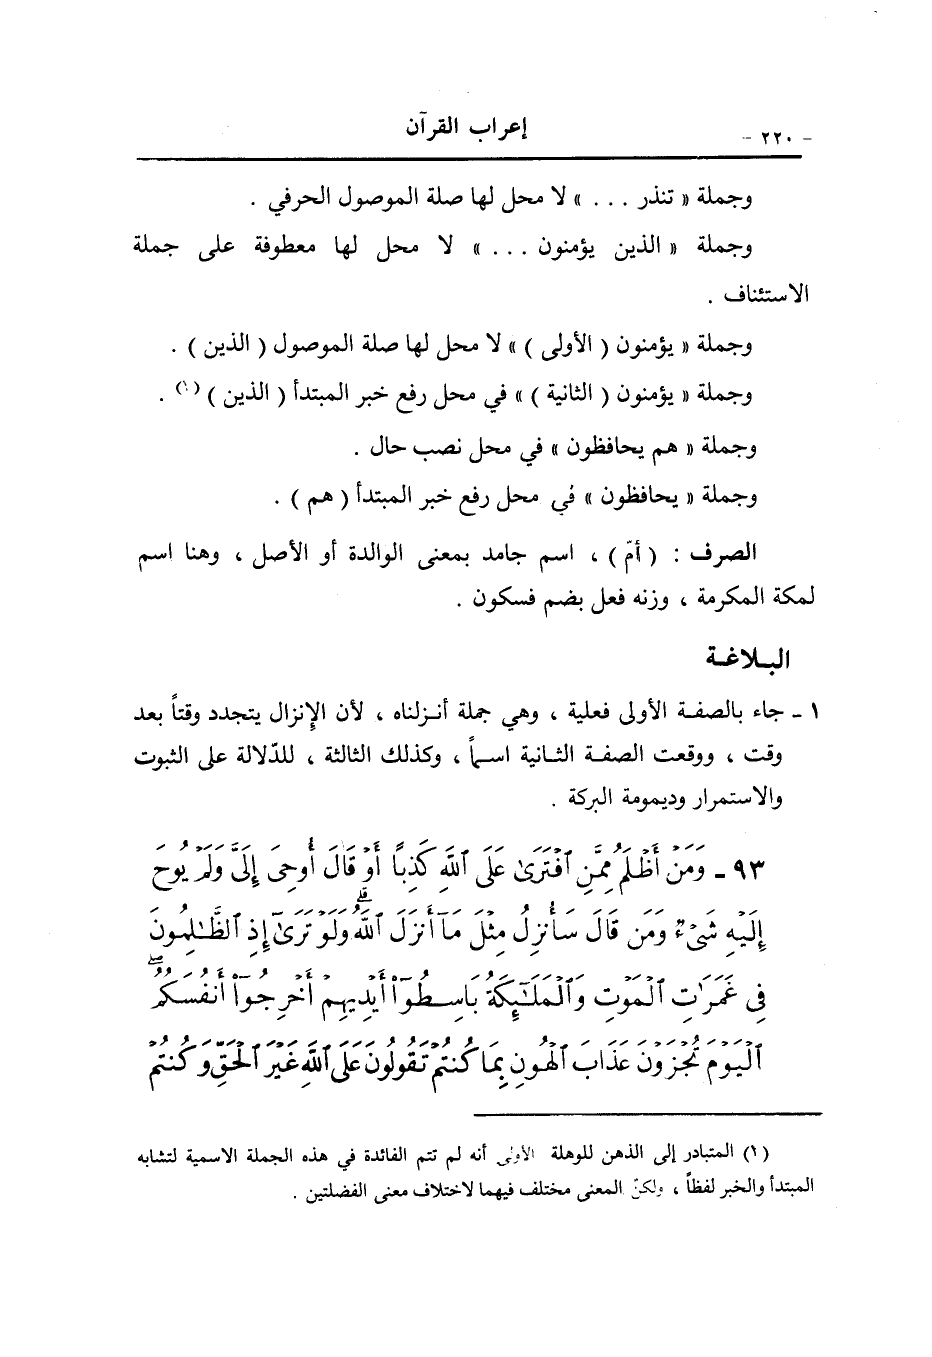 إعراب القرآن
- ٢٢٠ -
وجملة « تنذر . . . » لا محل لها صلة الموصول الحرفي .
وجملة « الذين يؤمنون . . . » لا محل لها معطوفة على جملة
الاستئناف .
وجملة « يؤمنون ( الأولى ) » لا محل لها صلة الموصول ( الذين ) .
وجملة « يؤمنون ( الثانية ) » في محل رفع خبر المبتدأ ( الذين ) (١) .
وجملة « هم يحافظون » في محل نصب حال .
وجملة « يحافظون » في محل رفع خبر المبتدأ ( هم ) .
الصرف : ( أمّ ) ، اسم جامد بمعنى الوالدة أو الأصل ، وهنا اسم
لمكة المكرمة ، وزنه فعل بضم فسكون .
البلاغة
١ - جاء بالصفة الأولى فعلية ، وهي جملة أنزلناه ، لأن الإنزال يتجدد وقتاً بعد
وقت ، ووقعت الصفة الثانية اسماً ، وكذلك الثالثة ، للدّلالة على الثبوت
والاستمرار وديمومة البركة .
٩٣ - وَمَنْ أَظْلَمُ مِمَّنِ ٱفْتَرَىٰ عَلَى ٱللَّهِ كَذِبًا أَوْ قَالَ أُوحِىَ إِلَىَّ وَلَمْ يُوحَ
إِلَيْهِ شَىْءٌ وَمَن قَالَ سَأُنزِلُ مِثْلَ مَآ أَنزَلَ ٱللَّهُ ۗ وَلَوْ تَرَىٰٓ إِذِ ٱلظَّٰلِمُونَ
فِى غَمَرَٰتِ ٱلْمَوْتِ وَٱلْمَلَٰٓئِكَةُ بَاسِطُوٓا۟ أَيْدِيهِمْ أَخْرِجُوٓا۟ أَنفُسَكُمُ ۖ
ٱلْيَوْمَ تُجْزَوْنَ عَذَابَ ٱلْهُونِ بِمَا كُنتُمْ تَقُولُونَ عَلَى ٱللَّهِ غَيْرَ ٱلْحَقِّ وَكُنتُمْ
(١) المتبادر إلى الذهن للوهلة الأولى أنه لم تتم الفائدة في هذه الجملة الاسمية لتشابه
المبتدأ والخبر لفظاً ، ولكنّ المعنى مختلف فيهما لاختلاف معنى الفضلتين .